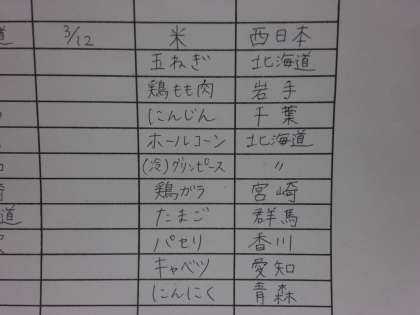 道 3/12 米 西日本
玉ねぎ 北海道
鶏もも肉 岩手
にんじん 千葉
ホールコーン 北海道
(冷)グリンピース 〃
鶏ガラ 宮崎
道 たまご 群馬
パセリ 香川
キャベツ 愛知
にんにく 青森